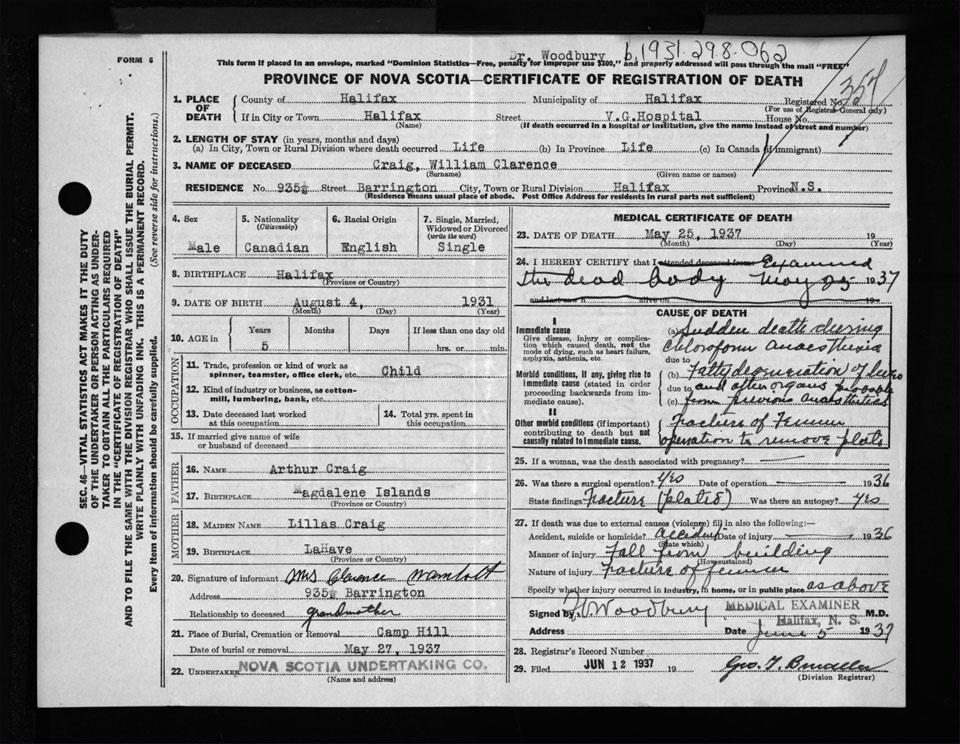 Dr. Woodbury b.1931-298-062
FORM 6
This form if placed in an envelope, marked "Dominion Statistics—Free, penalty for improper use $300," and properly addressed will pass through the mail "FREE"
PROVINCE OF NOVA SCOTIA—CERTIFICATE OF REGISTRATION OF DEATH
SEC. 46—VITAL STATISTICS ACT MAKES IT THE DUTY
OF THE UNDERTAKER OR PERSON ACTING AS UNDER-
TAKER TO OBTAIN ALL THE PARTICULARS REQUIRED
IN THE "CERTIFICATE OF REGISTRATION OF DEATH"
AND TO FILE THE SAME WITH THE DIVISION REGISTRAR WHO SHALL ISSUE THE BURIAL PERMIT.
WRITE PLAINLY WITH UNFADING INK. THIS IS A PERMANENT RECORD.
Every item of Information should be carefully supplied. (See reverse side for instructions.)
1. PLACE OF DEATH
County of Halifax Municipality of Halifax Registered No. 357
(For use of Registrar General only)
If in City or Town Halifax Street V.G.Hospital House No.
(Name) (If death occurred in a hospital or institution, give the name instead of street and number)
2. LENGTH OF STAY (in years, months and days)
(a) In City, Town or Rural Division where death occurred Life (b) In Province Life (c) In Canada (if immigrant)
3. NAME OF DECEASED Craig, William Clarence
(Surname) (Given name or names)
RESIDENCE No. 935½ Street Barrington City, Town or Rural Division Halifax Province N.S.
(Residence means usual place of abode. Post Office Address for residents in rural parts not sufficient)
4. Sex
Male
5. Nationality
(Citizenship)
Canadian
6. Racial Origin
English
7. Single, Married,
Widowed or Divorced
(write the word)
Single
8. BIRTHPLACE Halifax
(Province or Country)
9. DATE OF BIRTH August 4, 1931
(Month) (Day) (Year)
10. AGE in
Years Months Days If less than one day old
5 hrs. or min.
OCCUPATION
11. Trade, profession or kind of work as
spinner, teamster, office clerk, etc. Child
12. Kind of industry or business, as cotton-
mill, lumbering, bank, etc.
13. Date deceased last worked
at this occupation
14. Total yrs. spent in
this occupation
15. If married give name of wife
or husband of deceased
FATHER
16. NAME Arthur Craig
17. BIRTHPLACE Magdalene Islands
(Province or Country)
MOTHER
18. MAIDEN NAME Lillas Craig
19. BIRTHPLACE LaHave
(Province or Country)
20. Signature of informant Mrs Clarence Wambolt
Address 935½ Barrington
Relationship to deceased grandmother
21. Place of Burial, Cremation or Removal Camp Hill
Date of burial or removal May 27, 1937
22. Undertaker NOVA SCOTIA UNDERTAKING CO.
(Name and address)
MEDICAL CERTIFICATE OF DEATH
23. DATE OF DEATH May 25, 1937 19
(Month) (Day) (Year)
24. I HEREBY CERTIFY that I attended deceased from Examined
the dead body May 25 1937
and last saw h alive on 19
CAUSE OF DEATH
I
Immediate cause
Give disease, injury or complica-
tion which caused death, not the
mode of dying, such as heart failure,
asphyxia, asthenia, etc.
(a) Sudden death during
chloroform anaesthesia
due to
Morbid conditions, if any, giving rise to
immediate cause (stated in order
proceeding backwards from im-
mediate cause).
(b) Fatty degeneration of liver
due to and other organs probably
(c) from previous anaesthetics
II
Other morbid conditions (if important)
contributing to death but not
causally related to immediate cause.
Fracture of Femur
operation to remove plate
25. If a woman, was the death associated with pregnancy? —
26. Was there a surgical operation? Yes Date of operation — 1936
State findings Fracture (plated) Was there an autopsy? Yes
27. If death was due to external causes (violence) fill in also the following:—
Accident, suicide or homicide? accident Date of injury — 1936
(State which)
Manner of injury Fall from building
(How sustained)
Nature of injury Fracture of femur
Specify whether injury occurred in industry, in home, or in public place as above
Signed by Woodbury MEDICAL EXAMINER M.D.
Halifax, N. S.
Address Date June 5 1937
28. Registrar's Record Number
29. Filed JUN 12 1937 19
(Division Registrar)